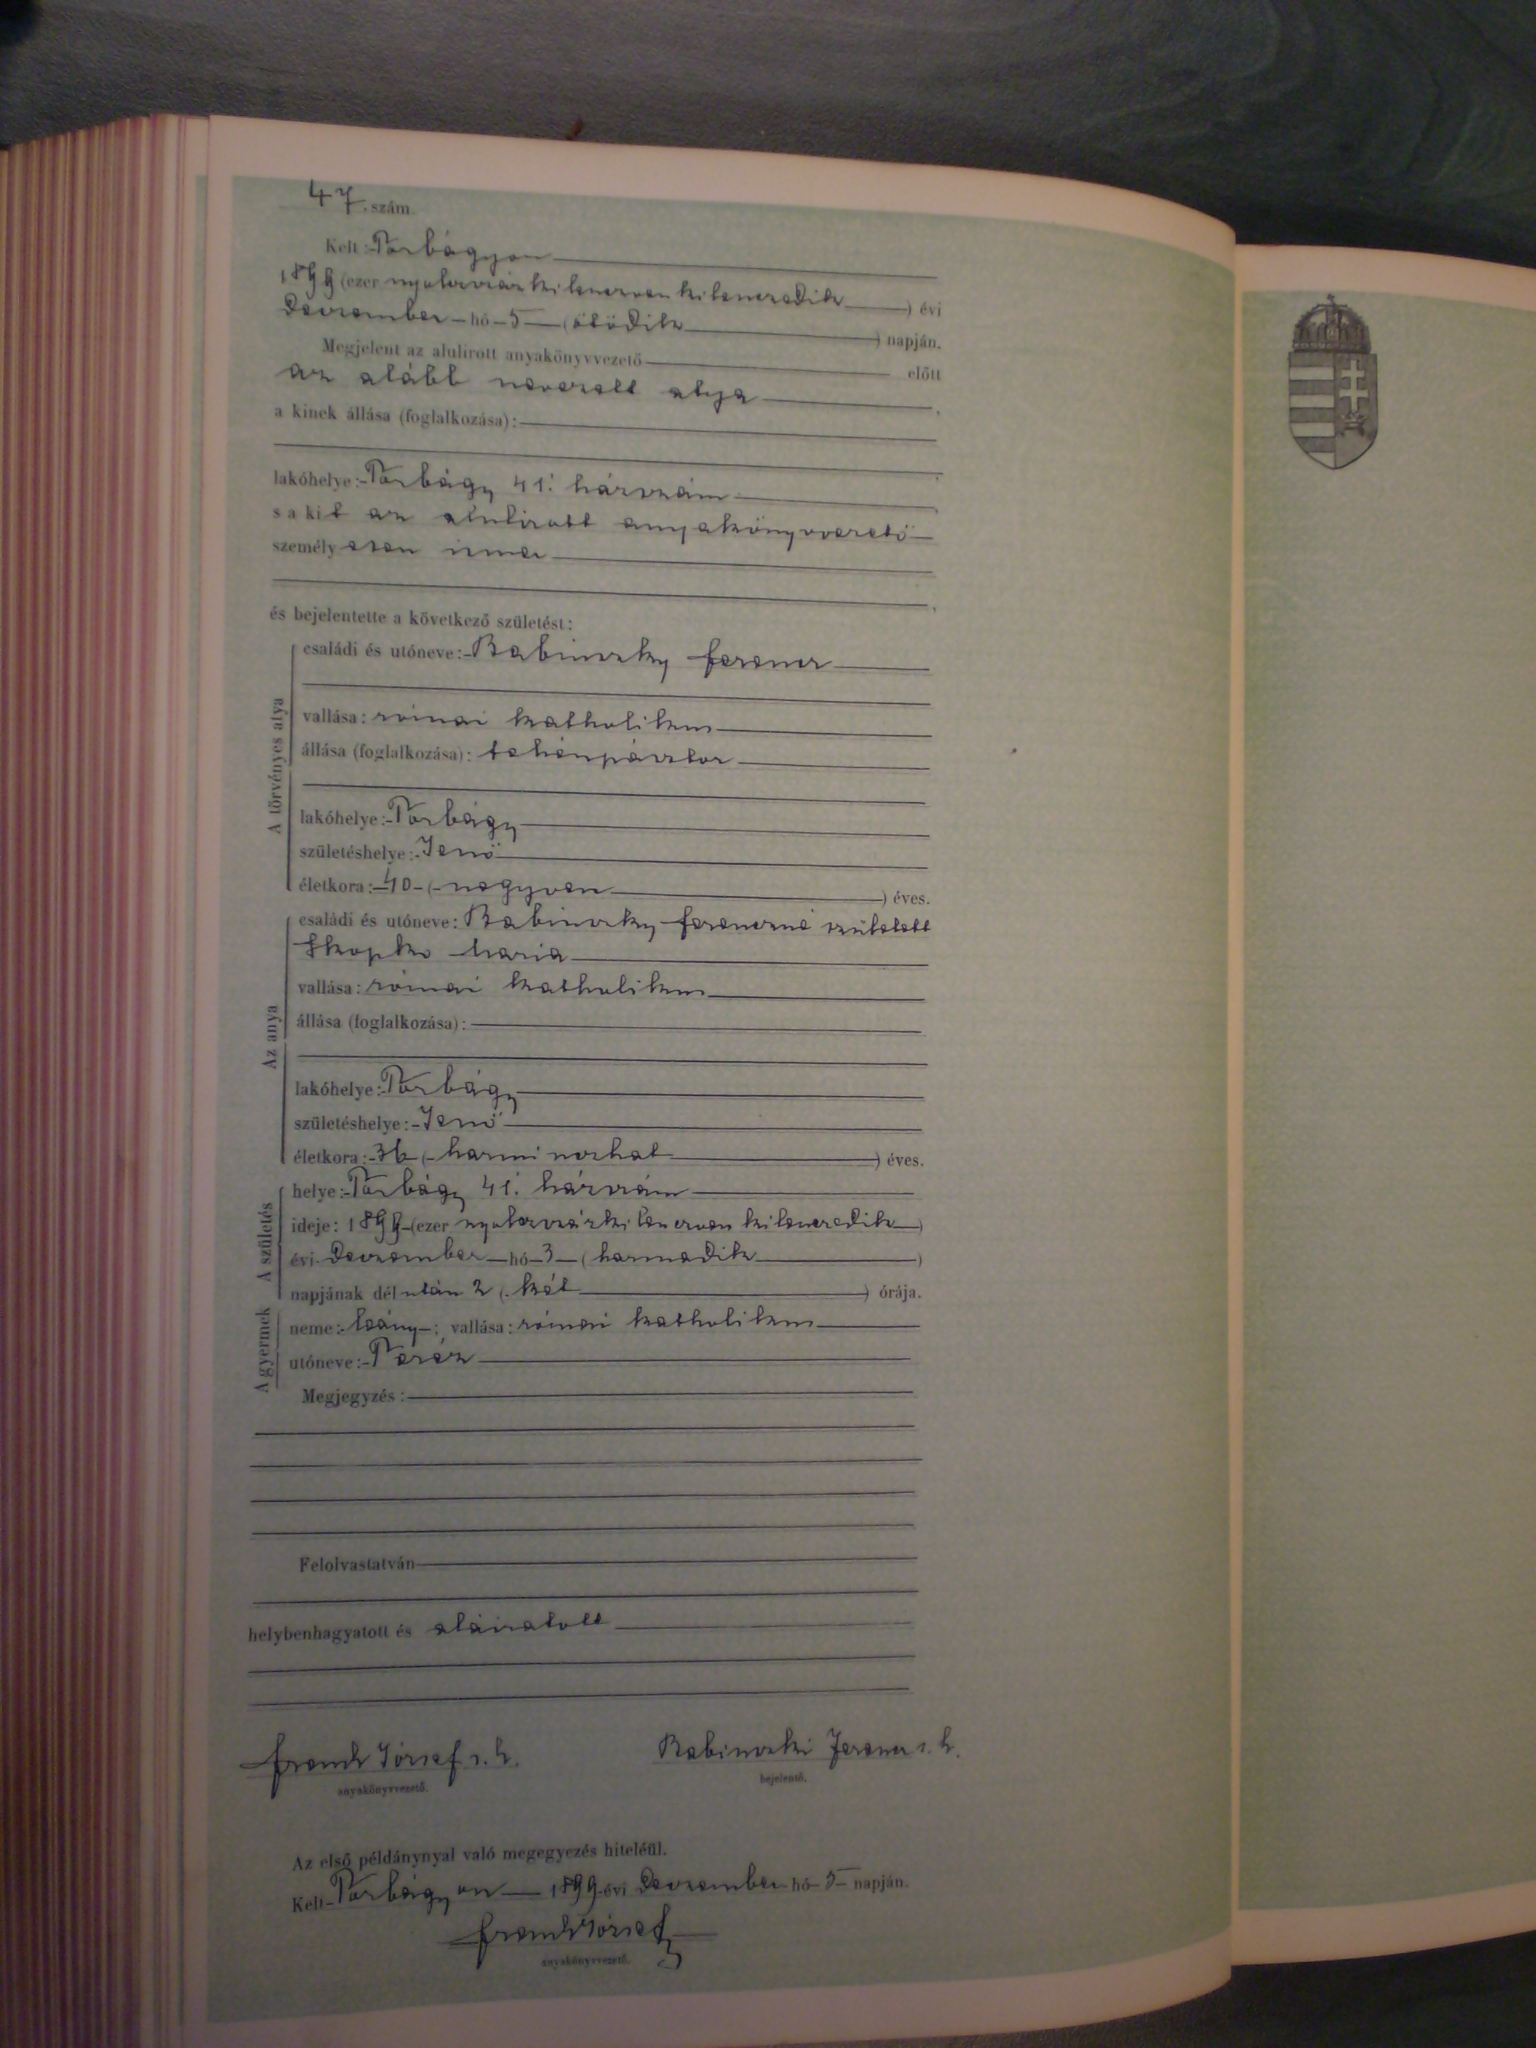 47. szám.
Kelt: Torbágyon
1899 (ezer nyolczszázkilenczvenkilenczedik) évi
Deczember hó 5 (ötödik) napján.
Megjelent az alulirott anyakönyvvezető előtt
az alább nevezett atya,
a kinek állása (foglalkozása):
lakóhelye: Torbágy 41. házszám,
s a kit az alulirott anyakönyvvezető
személyesen ismer,
és bejelentette a következő születést:
A törvényes atya
családi és utóneve: Babinszky Ferencz
vallása: római katholikus
állása (foglalkozása): tehénpásztor
lakóhelye: Torbágy
születéshelye: Jenő
életkora: 40 (negyven) éves.
Az anya
családi és utóneve: Babinszky Ferenczné született
Skopko Mária
vallása: római katholikus
állása (foglalkozása):
lakóhelye: Torbágy
születéshelye: Jenő
életkora: 36 (harminczhat) éves.
A születés
helye: Torbágy 41. házszám
ideje: 1899 (ezer nyolczszázkilenczvenkilenczedik)
évi Deczember hó 3 (harmadik)
napjának dél után 2 (két) órája.
A gyermek
neme: leány; vallása: római katholikus
utóneve: Teréz
Megjegyzés:
Felolvastatván
helybenhagyatott és aláiratott
József s. k. Babinszki Ferencz s. k.
anyakönyvvezető. bejelentő.
Az első példánynyal való megegyezés hiteléül.
Kelt Torbágyon 1899 évi Deczember hó 5 napján.
József
anyakönyvvezető.